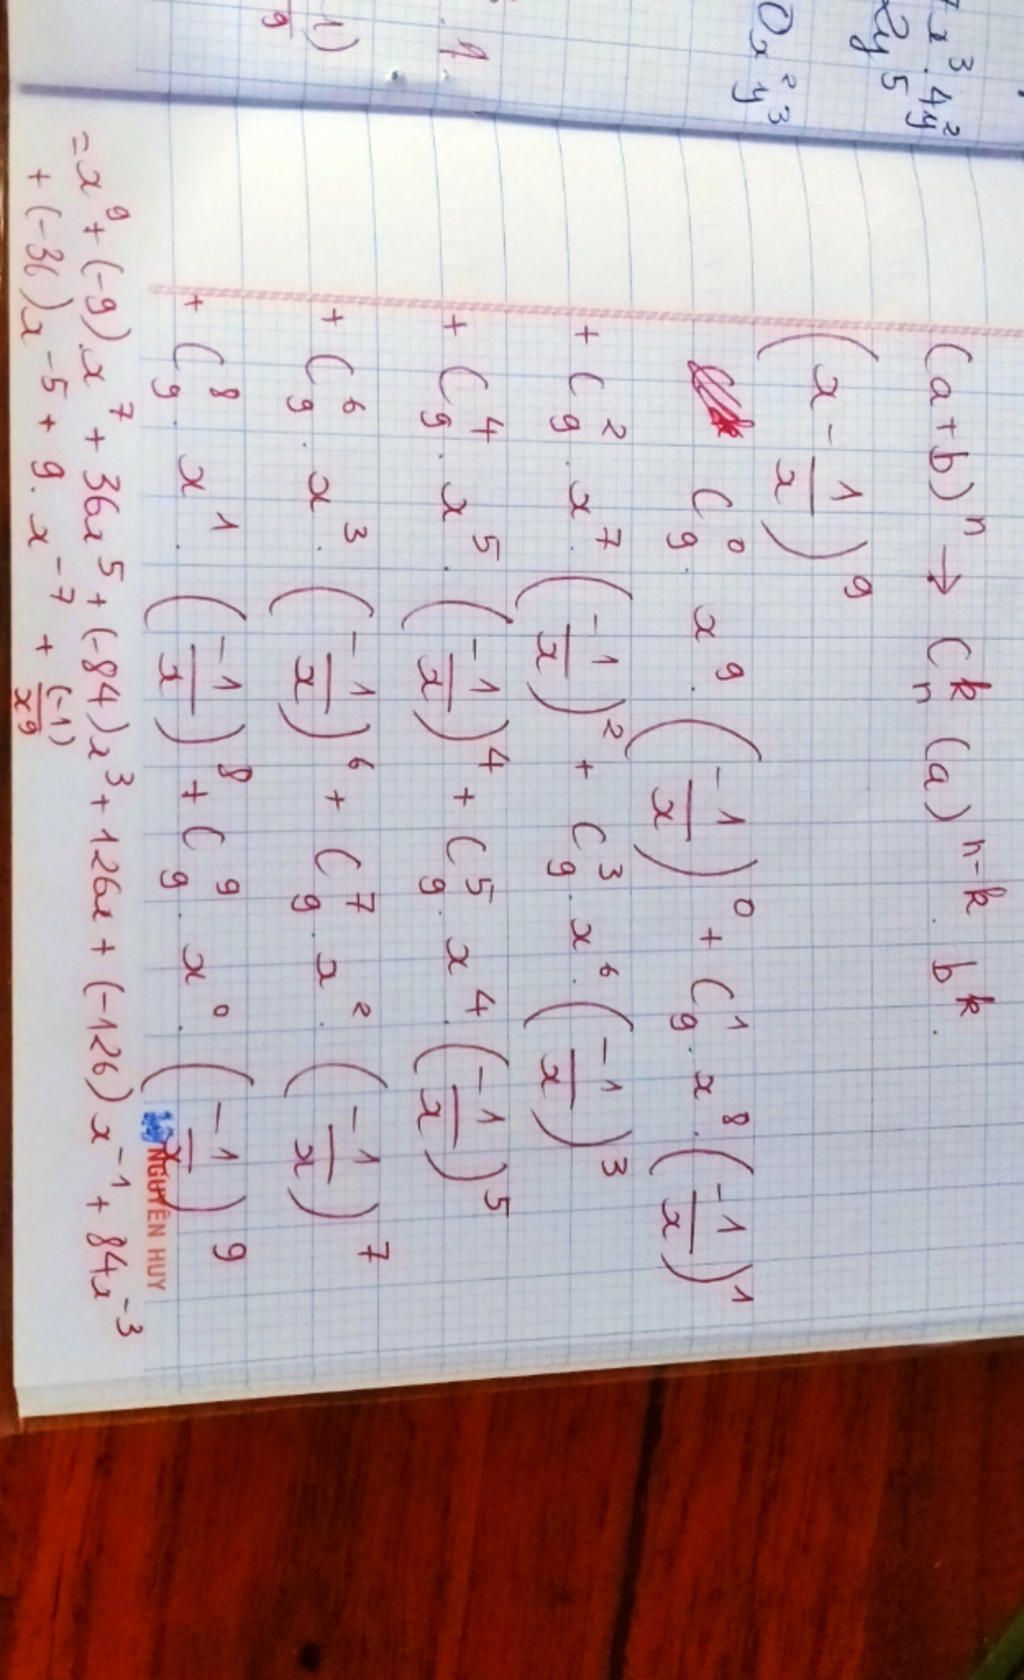 x³.4y²
2y⁵
0x²y³
(a+b)ⁿ → Cₙᵏ (a)ⁿ⁻ᵏ . bᵏ.
(x - 1/x)⁹
C₉⁰ . x⁹ . (-1/x)⁰ + C₉¹ . x⁸ . (-1/x)¹
+ C₉² . x⁷ . (-1/x)² + C₉³ . x⁶ . (-1/x)³
+ C₉⁴ . x⁵ . (-1/x)⁴ + C₉⁵ x⁴ . (-1/x)⁵
+ C₉⁶ . x³ . (-1/x)⁶ + C₉⁷ . x² . (-1/x)⁷
+ C₉⁸ . x¹ . (-1/x)⁸ + C₉⁹ . x⁰ . (-1/x)⁹
NGUYÊN HUY
= x⁹ + (-9) x⁷ + 36x⁵ + (-84) x³ + 126x + (-126) x⁻¹ + 84x⁻³
+ (-36) x⁻⁵ + 9 . x⁻⁷ + (-1)/x⁹